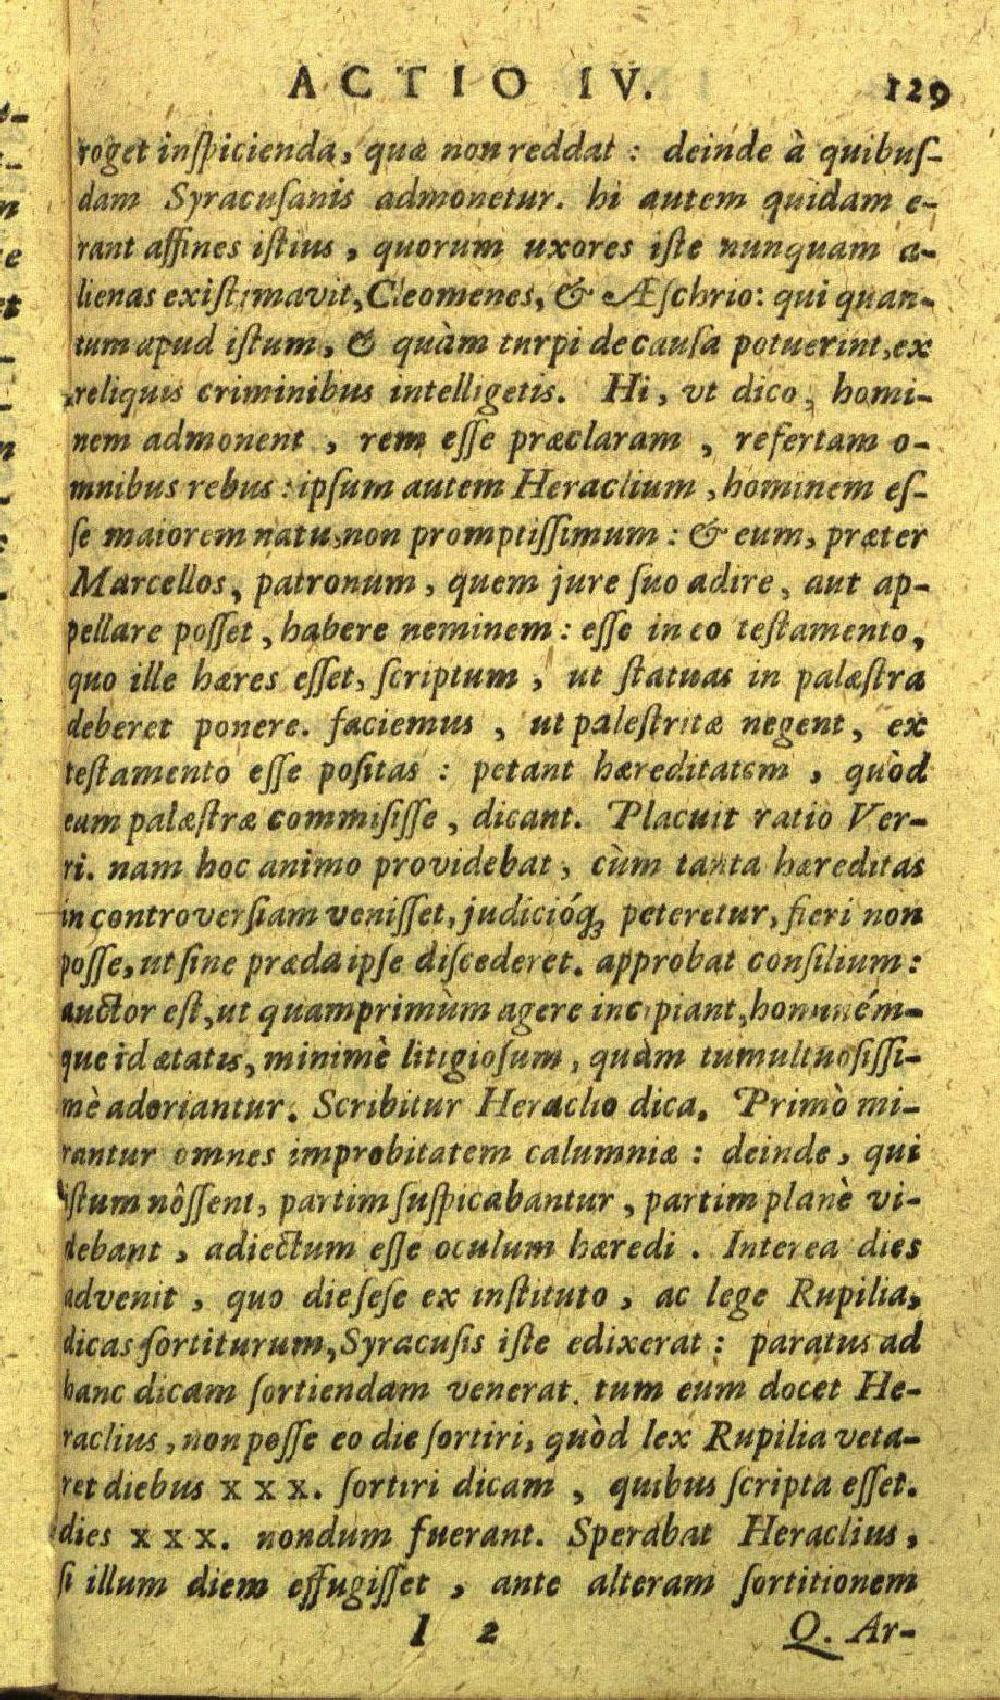 ACTIO IV. 129
roget inſpicienda, quæ non reddat : deinde à quibuſ-
dam Syracuſanis admonetur. hi autem quidam e-
rant affines iſtius, quorum uxores iſte nunquam a-
lienas exiſtimavit, Cleomenes, & Æſchrio: qui quan-
tum apud iſtum, & quàm turpi de cauſa potuerint, ex
reliquis criminibus intelligetis. Hi, vt dico, homi-
nem admonent, rem eſſe præclaram, refertam o-
mnibus rebus : ipſum autem Heraclium, hominem eſ-
ſe maiorem natu, non promptiſſimum : & eum, præter
Marcellos, patronum, quem jure ſuo adire, aut ap-
pellare poſſet, habere neminem : eſſe in eo teſtamento,
quo ille hæres eſſet, ſcriptum, ut ſtatuas in palæſtra
deberet ponere. faciemus, ut paleſtritæ negent, ex
teſtamento eſſe poſitas : petant hæreditatem, quòd
eam palæſtræ commiſiſſe, dicant. Placuit ratio Ver-
ri. nam hoc animo providebat, cùm tanta hæreditas
in controverſiam veniſſet, judicióq; peteretur, fieri non
poſſe, ut ſine præda ipſe diſcederet. approbat conſilium :
auctor eſt, ut quamprimùm agere incipiant, hominém-
que id ætatis, minimè litigioſum, quàm tumultuoſiſſi-
mè adoriantur. Scribitur Heraclio dica. Primò mi-
rantur omnes improbitatem calumniæ : deinde, qui
iſtum nôſſent, partim ſuſpicabantur, partim planè vi-
debant, adiectum eſſe oculum hæredi. Interea dies
advenit, quo die ſeſe ex inſtituto, ac lege Rupilia,
dicas ſortiturum, Syracuſis iſte edixerat : paratus ad
hanc dicam ſortiendam venerat. tum eum docet He-
raclius, non poſſe eo die ſortiri, quòd lex Rupilia veta-
ret diebus x x x. ſortiri dicam, quibus ſcripta eſſet.
dies x x x. nondum fuerant. Sperabat Heraclius,
ſi illum diem effugiſſet, ante alteram ſortitionem
I 2 Q. Ar-